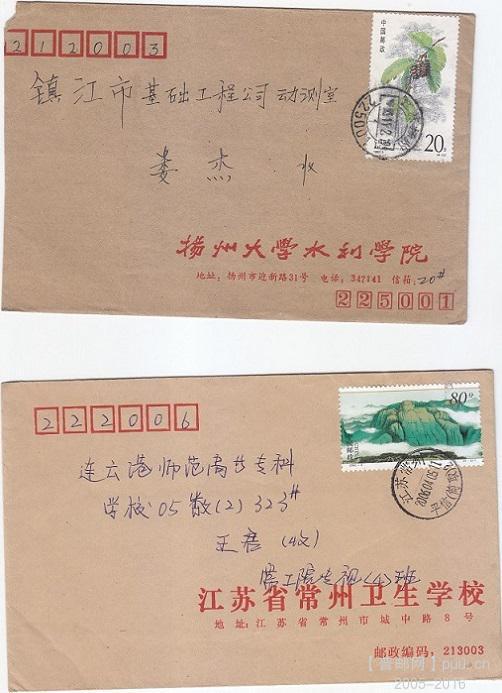 212003
中国邮政
20分
镇江市基础工程公司动测室
娄杰 收
扬州大學水利學院
地址：扬州市迎新路31号 电话：347141 信箱：20#
225001
80分
222006
江苏常州
连云港师范高等专科
学校05数(2)323#
王君(收)
常工院电视(4)班
江苏省常州卫生学校
地址：江苏省常州市城中路8号
邮政编码：213003
【晋邮网】puu.cn
2005-2016